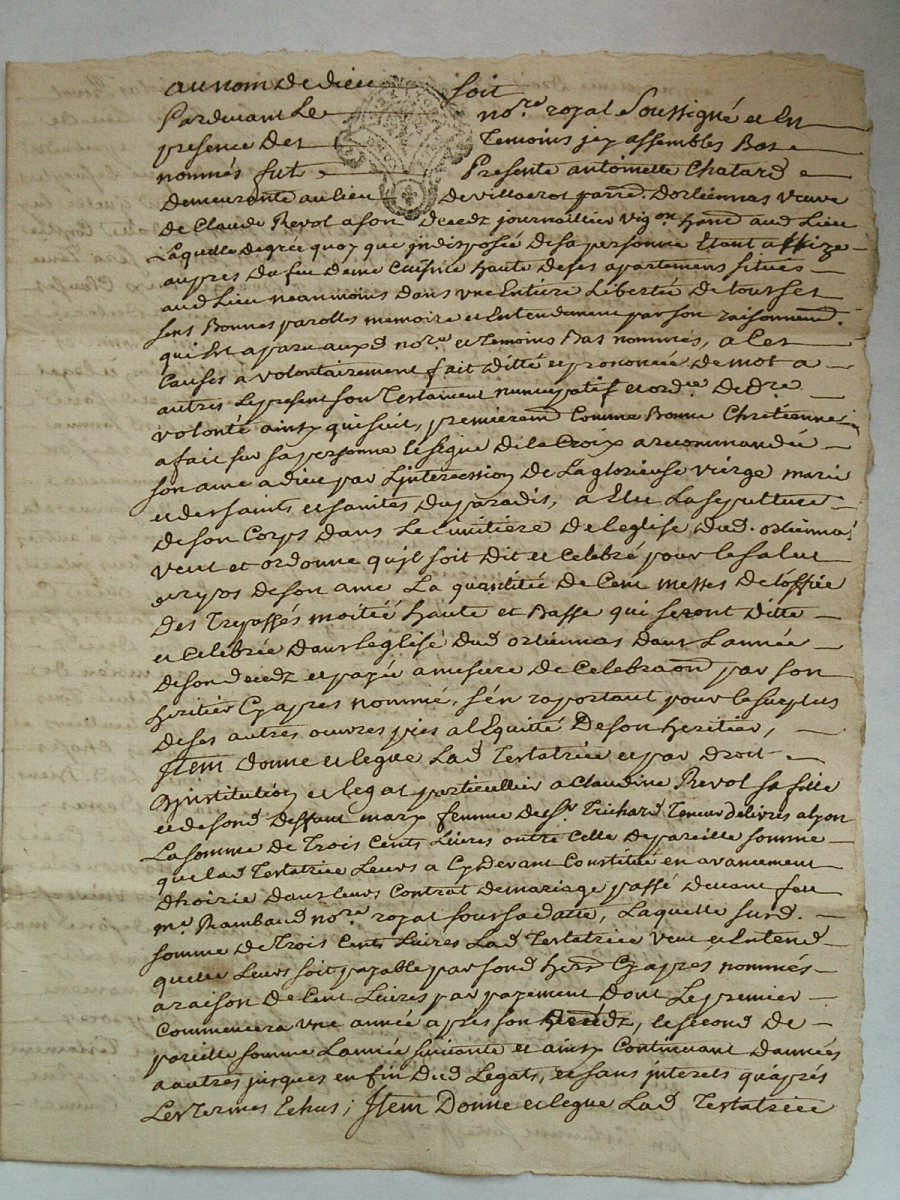 au nom de dieu soit
Pardevant Le no.re royal Soussigné et En
presence des Temoins jcy assembles Bas
nommés fut Presente antoinette Chatard
demeurante au lieu de villaerot parr.e Dorliennas veuve
de Claude Revol a son decedz journallier vig.on hand aud Lieu
Laquelle de gré quoy que jndisposée de sa personne Etant assize
aupres du feu dune Cuisine haute de ses apartemens situés
aud Lieu neanmoins dans une Entiere Libertée de tous ses
sens Bonnes parolles memoire et Entendement par son raisonnemt.
qui Est aparu auxd no.re et temoins Bas nommés, a Les
Causes a volontairement fait ditté et prononcée de mot a
autres Le present son Testament nuncupatif et ord.re de d.re
volonté ainsy qui suit, premieremt Comme Bonne Chretienne
a fait sur sa personne le signe de la Croix a recommandée
son ame a dieu par L'jntercession de La glorieuse vierge marie
et des saints et saintes du paradis, a Elu La sepulture
de son Corps dans Le cimitiere de leglise dud. orliennas
veut et ordonne qu'jl soit dit et Celebré pour le salut
et repos de son ame La quantitée de Cent messes de loffice
des Trepassés moitée haute et Basse qui seront ditte
et Celebrée dans leglise dud orliennas dans L'année
de son decedz et payée a mesure de Celebraon par son
heritier Cy apres nommé, s'en raportant pour le surplus
de ses autres ouvres pies a l'Equitté de son heritier,
Jtem donne et legue Lad Testatrice et par droit
d'jnstitution et legat particullier a Claudine Revol sa fille
et de sond deffunt mary femme de s.r Trichard Teneur de livres a lyon
La somme de Trois Cents Livres outre Celle de pareille somme
que lad Testatrice Leurs a Cy devant Constitué en avancement
d'hoirie dans leurs Contrat de mariage passé devant feu
m.e Rambaud no.re royal sous sa datte, Laquelle surd.
somme de Trois Cents Livres Lad Testatrice veut et Entend
quelle Leurs soit payable par sond herer Cy apres nommés
a raison de Cent Livres par payement dont Le premier
Commencera une année apres son decedz, le second de
pareille somme L'année suivante et ainsy Continuant d'années
a autres jusques en fin dud Legats, et sans jnterets qu'aprés
Les Termes Echus; Jtem donne et legue Lad Testatrice